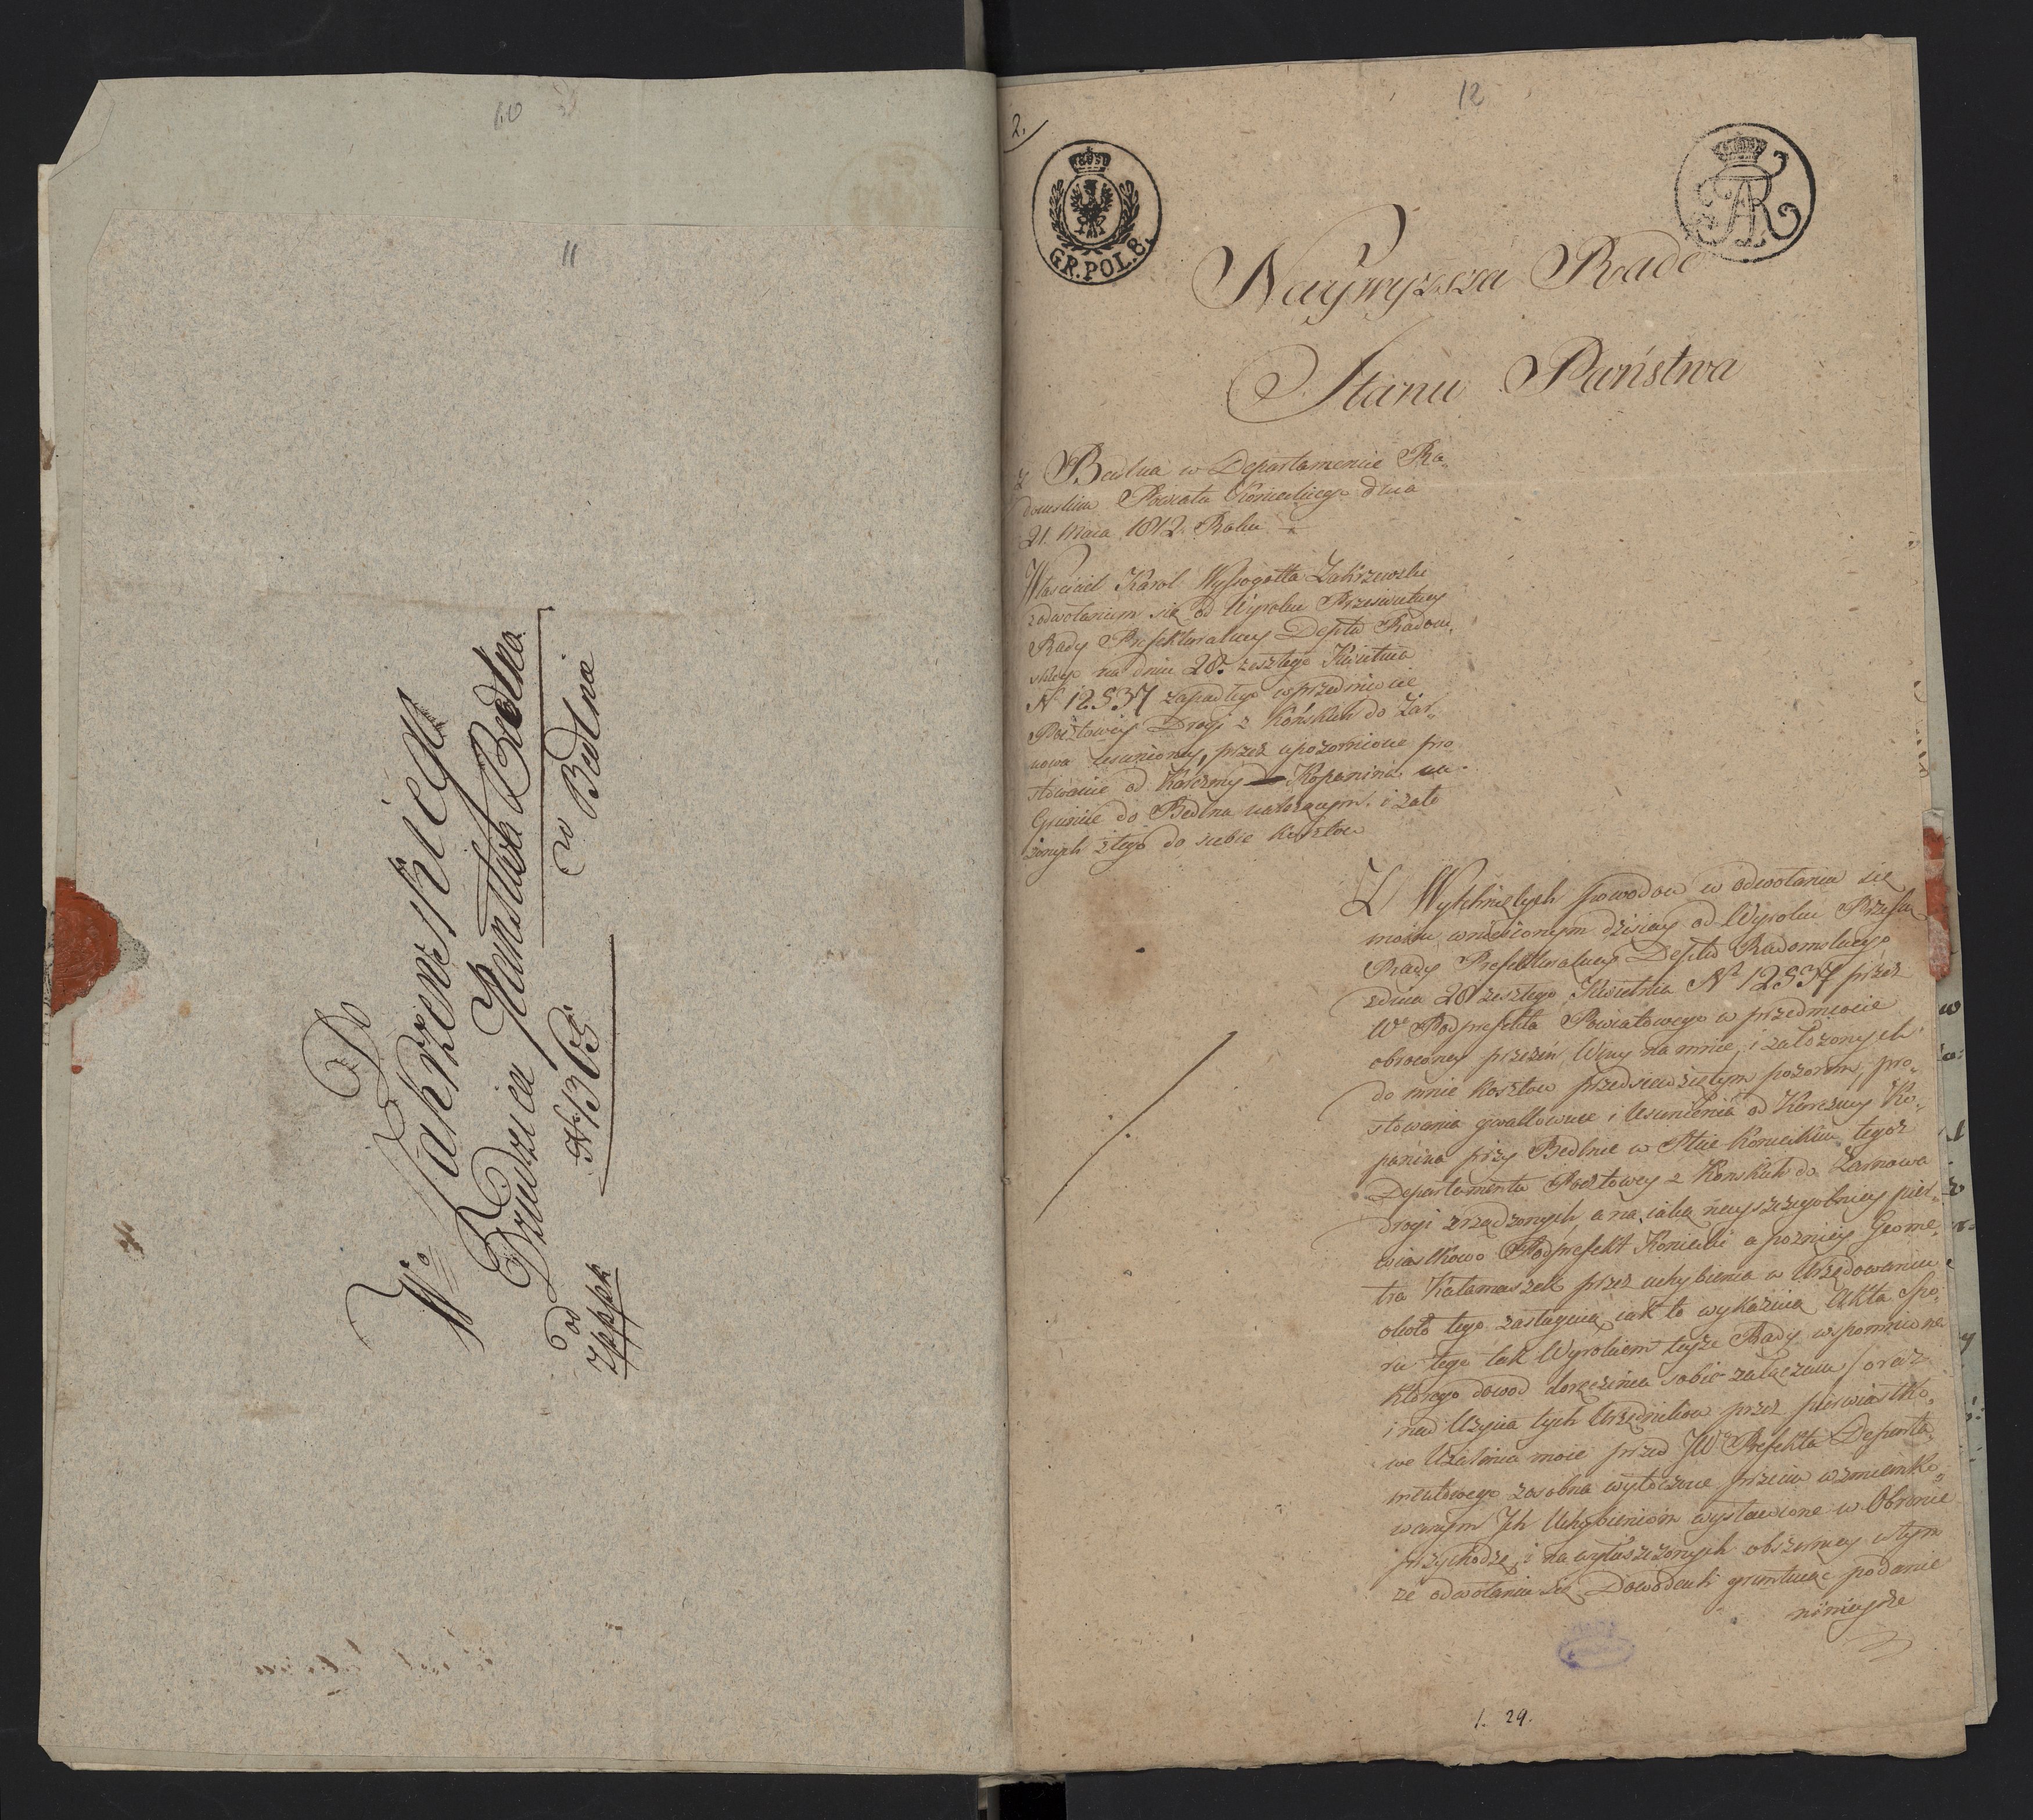 10
11
Do
Wo Zakrzewskiego
Dziedzica Państwa Bedlna
w Bedlnie
od
zpppk
N 1365
12
2.
GR. POL. 8.
Naywyższa Rado
Stanu Państwa
z Bedlna w Departamencie Ra„
domskim Powiatu Konieckiego dnia
21. Maia 1812. Roku
Właściciel Karol Wyssogotta Zakrzewski
z odwołaniem się od Wyroku Prześwietney
Rady Prefekturalney Deptu Radom„
skiego na dniu 28. zeszłego Kwietnia
N 12537 zapadłego w przedmiocie
Pocztowey Drogi z Końskich do Żar„
nowa usunioney, przez upozornione pro
stowanie od Karczmy Kopanina na
Gruncie do Bedlna należącym i zało
żonych z tego do siebie kosztow
Z Wytchniętych powodow w odwołaniu się
moim wniesionym dzisiay od Wyroku Prześw
Rady Prefekturalney Deptu Radomskiego
z dnia 28 zeszłego Kwietnia N 12537 przez
Wo Podprefekta Powiatowego w przedmiocie
obroconey przezeń Winy na mnie, i założonych
do mnie kosztow przedsiewziętym pozorem, pro„
stowania gwałtownie i Usunienia od Karczmy Ko„
panina przy Bedlnie w Ptcie Konieckim tegoż
Departamentu Pocztowey z Konskich do Żarnowa
drogi zrządzonych, a na iaką nayszczegolniey pier„
wiastkowo Podprefekt Koniecki a pozniey Geome„
tra Kalamaszek przez uchybienia w Urzędowaniu
około tego zasługuią iak to wykażuią Akta Spo„
ru tego tak Wyrokiem teyże Rady wspomnione
ktorego dowod doręczenia sobie załączam / oraz
i nad Użycia tych Urzędnikow przez pierwiastko„
we Użalenia moie przed JWo Prefekta Departa„
mentowego zosobna wytoczone przeciw wzmianko„
wanym Jch Uchybieniom wystawione w Obronie
przychodzę, i na wyłuszczonych obszerniey w tym
że odwołaniu się Dowodach gruntuiąc podanie
ninieysze
1. 29.